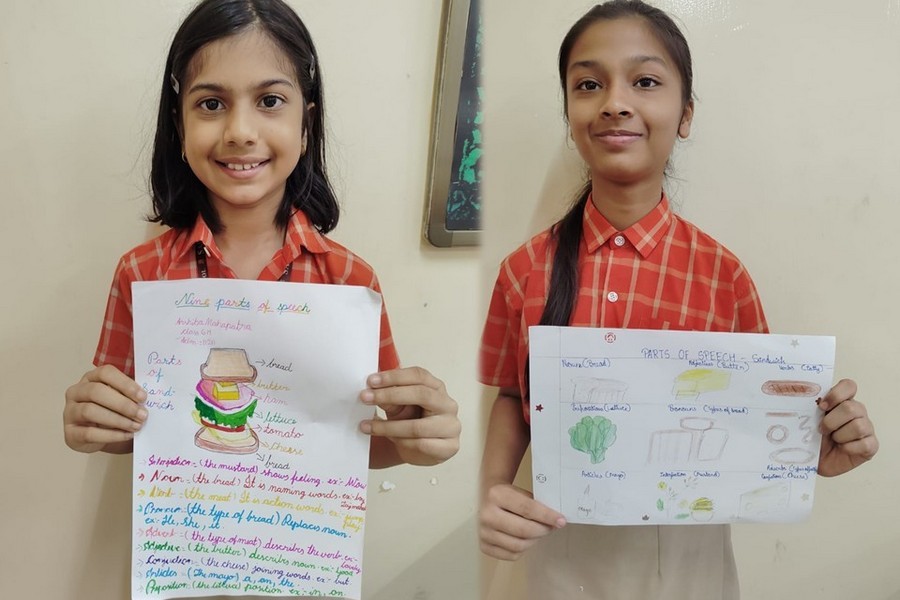 Nine parts of speech
Anvika Mahapatra
Class
Parts
of
Sand
wich
bread
butter
ham
lettuce
tomato
cheese
bread
Interjection:- (the mustard) shows feeling. ex:- Wow
Noun = (the bread) It is naming words. ex:-
Verb = (the meat) It is action words. ex:-
play.
Pronoun = (the type of bread) Replaces noun.
ex:- He, she, it.
Advert = (the type of meat) describs the verb. ex:-
Adjective = (the butter) describs noun. ex:- Good
Conjuction = (the cheese) joining words. ex:- but
Articles = (The mayo) a, an, the.
Preposition = (the lettuce) position. ex:- in, on.
PARTS OF SPEECH - Sandwich
Noun (Bread)
Adjectives (Butter)
Verbs (Patty)
Preposition (Lettuce)
Pronouns (Types of bread)
Adverbs
Article (Mayo)
Interjection (Mustard)
Conjuction (Cheese)
Mayo